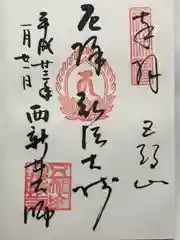 奉拝
五智山
厄除弘法大師
西新井大師
平成廿三年
一月廿一日